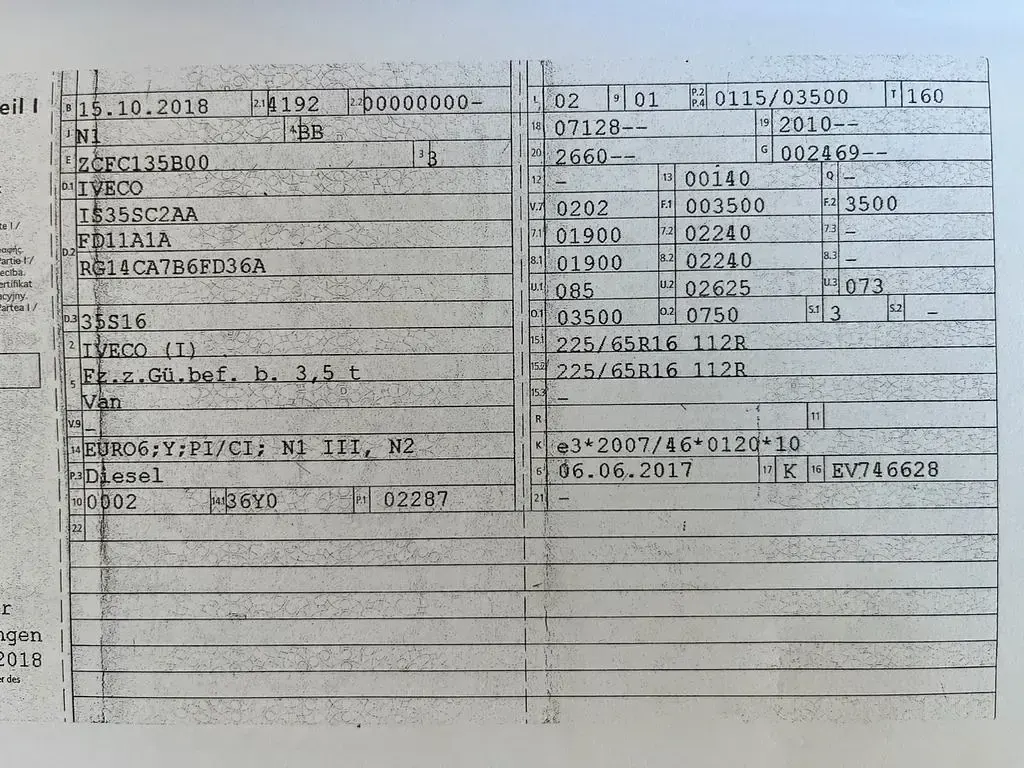 eil I
B 15.10.2018 2.1 4192 2.2 00000000-
J N1 4 BB
E ZCFC135B00 3 3
D.1 IVECO
IS35SC2AA
FD11A1A
D.2 RG14CA7B6FD36A
D.3 35S16
2 IVECO (I)
5 Fz.z.Gü.bef. b. 3,5 t
Van
V.9 –
14 EURO6;Y;PI/CI; N1 III, N2
P.3 Diesel
10 0002 14.1 36Y0 P.1 02287
22
L 02 9 01 P.2 P.4 0115/03500 T 160
18 07128-- 19 2010--
20 2660-- G 002469--
12 – 13 00140 Q –
V.7 0202 F.1 003500 F.2 3500
7.1 01900 7.2 02240 7.3 –
8.1 01900 8.2 02240 8.3 –
U.1 085 U.2 02625 U.3 073
O.1 03500 O.2 0750 S.1 3 S.2 –
15.1 225/65R16 112R
15.2 225/65R16 112R
15.3 –
R 11
K e3*2007/46*0120*10
6 06.06.2017 17 K 16 EV746628
21 –
te I /
Partie I /
ecība.
ertifikat
acyjny.
Partea I /
r
ngen
2018
er des